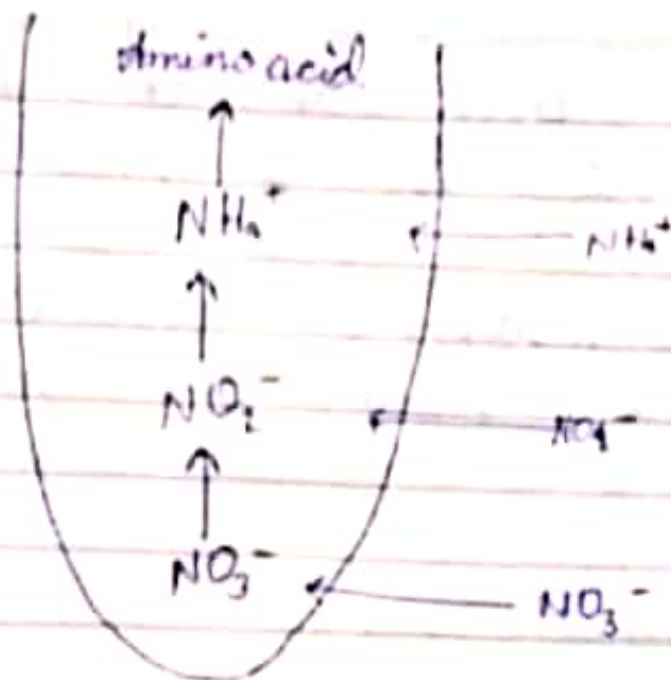 Amino acid
NH₄⁺
NH₄⁺
NO₂⁻
NO₃⁻
NO₃⁻